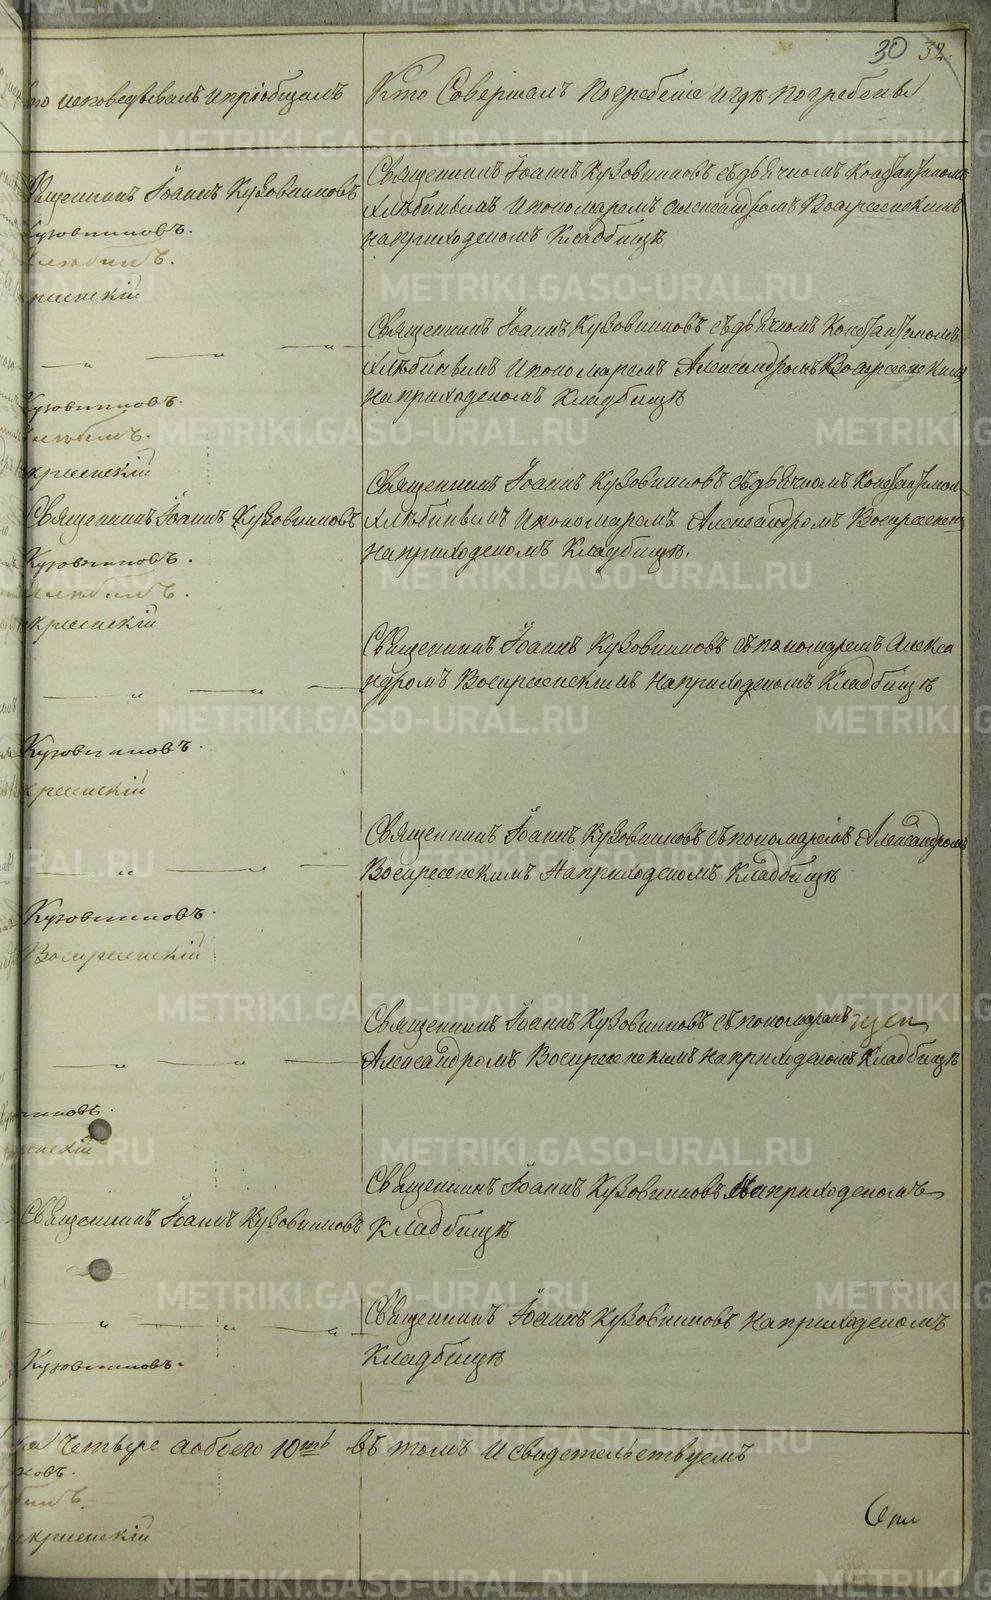 30 32
кто исповедывалъ и пріобщалъ
Кто Совершалъ Погребеніе и гдѣ погребены
Священникъ Іоаннъ Кузовниковъ
Кузовниковъ.
кресенскій
Священникъ Іоаннъ Кузовниковъ съ дьячкомъ Константиномъ
Хлѣбинымъ и пономаремъ Александромъ Воскресенскимъ
на приходскомъ Кладбищѣ
— „ — „ — „ —
Кузовниковъ.
кресенскій
Священникъ Іоаннъ Кузовниковъ съ дьячкомъ Константиномъ
Хлѣбинымъ и пономаремъ Александромъ Воскресенскимъ
на приходскомъ Кладбищѣ
Священникъ Іоаннъ Кузовниковъ
Кузовниковъ.
кресенскій
Священникъ Іоаннъ Кузовниковъ съ дьячкомъ Константином
Хлѣбинымъ и пономаремъ Александромъ Воскресен
на приходскомъ Кладбищѣ.
— „ — „ —
Кузовниковъ.
кресенскій
Священникъ Іоаннъ Кузовниковъ съ пономаремъ Алекса
ндромъ Воскресенскимъ на приходскомъ Кладбищѣ
— „ — „ —
Кузовниковъ.
Воскресенскій
Священникъ Іоаннъ Кузовниковъ съ пономаремъ Александромъ
Воскресенскимъ На приходскомъ Кладбищѣ
— „ — „ —
никовъ.
енскій
Священникъ Іоаннъ Кузовниковъ съ пономаремъ
Александромъ Воскресенскимъ на приходскомъ Кладбищѣ
Священникъ Іоаннъ Кузовниковъ
Священникъ Іоаннъ Кузовниковъ На приходскомъ
Кладбищѣ
— „ — „ — „ —
Кузовниковъ.
Священникъ Іоаннъ Кузовниковъ на приходскомъ
Кладбищѣ
Четыре а обоего 10ть въ томъ и свидетельствуемъ
ковъ.
скресенскій
METRIKI.GASO-URAL.RU